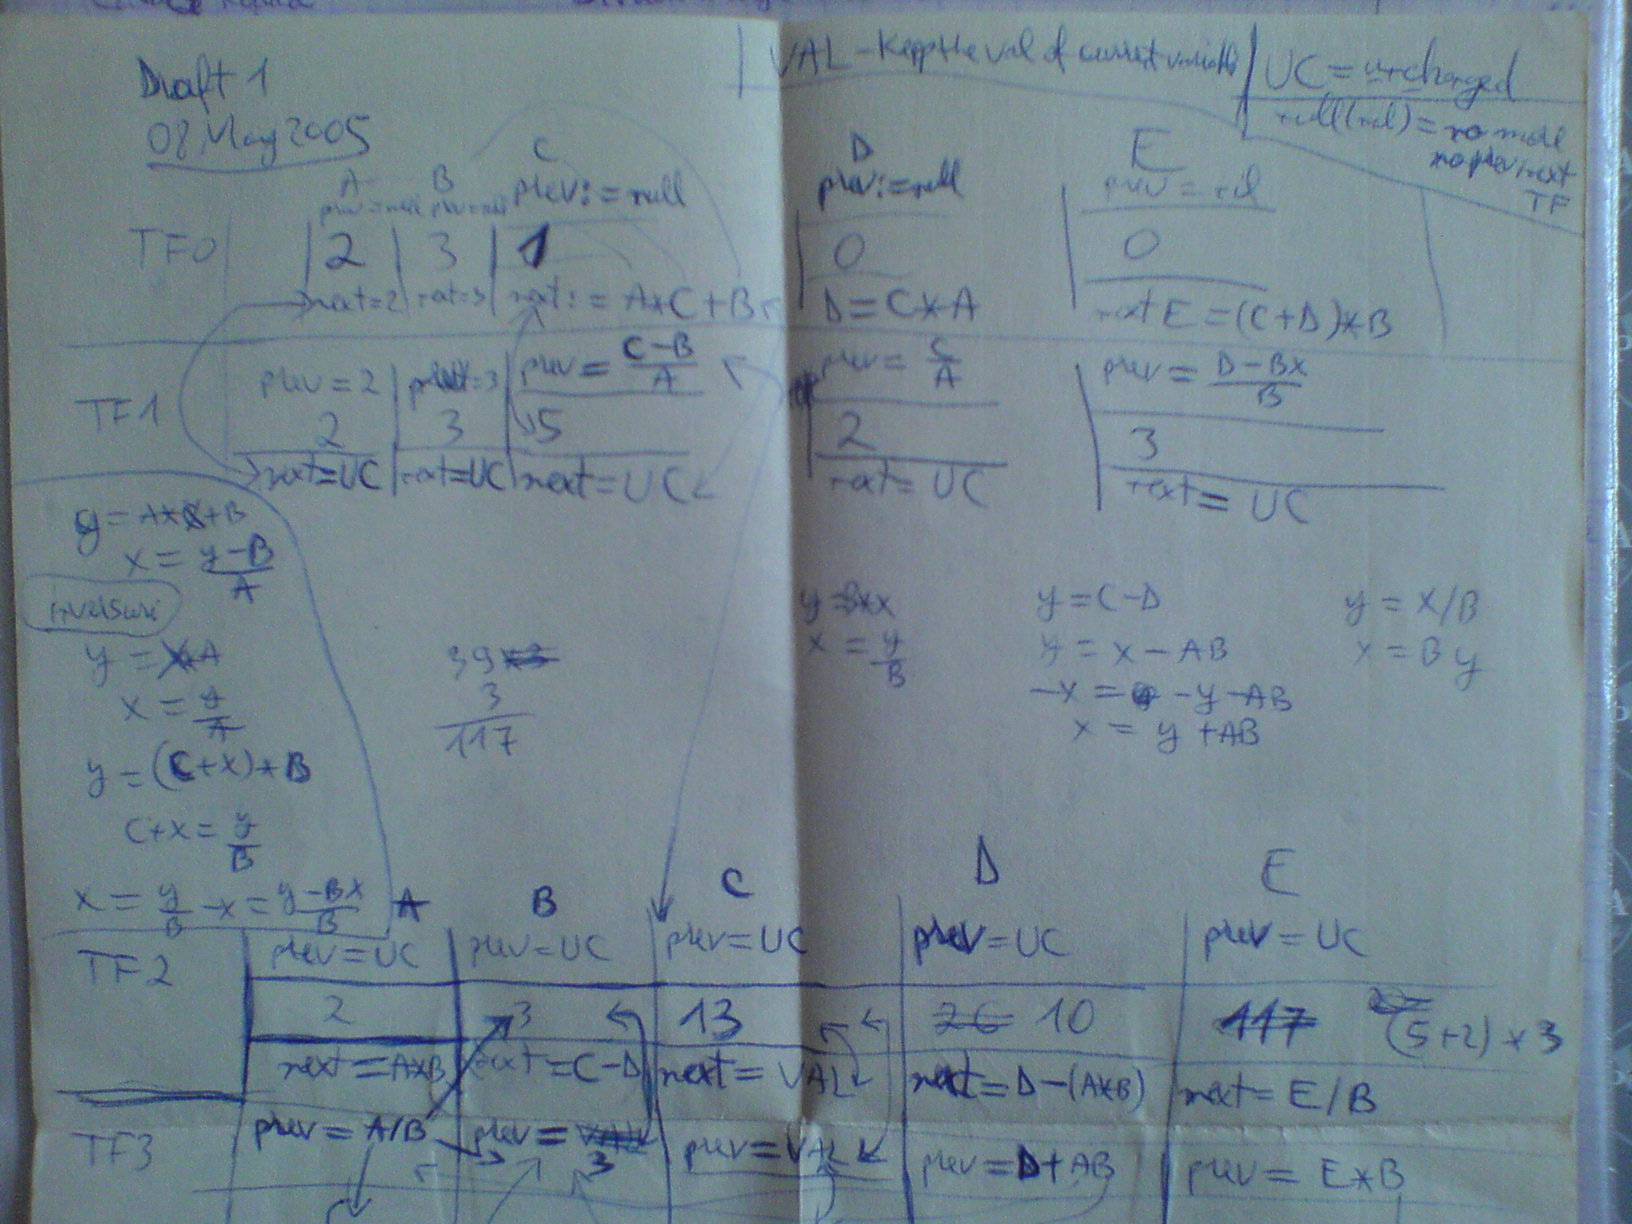 Draft 1
08 May 2005
VAL - Kepp the val of current variable
UC = unchanged
null(nil) = no more
no prev/next
TF
A B C D E
prev = null prev = null prev := null prev := null prev = nil
TF0 2 3 1 0 0
next = 2 next = 3 next := A*C+B D = C*A next E = (C+D)*B
prev = 2 prev = 3 prev = C-B/A prev = C/A prev = D-BX/B
TF1 2 3 5 2 3
next = UC next = UC next = UC next = UC next = UC
y = A*X+B
x = y-B/A
y = XA
x = y/A
y = (C+X)*B
C+X = y/B
x = y/B - x = y-BX/B
39
3
117
y = B*X
x = y/B
y = C-D
y = X-AB
-x = -y-AB
x = y+AB
y = X/B
x = By
A B C D E
TF2 prev = UC prev = UC prev = UC prev = UC prev = UC
2 3 13 26 10 117 (5+2)*3
next = A*B next = C-D next = VAL next = D-(A*B) next = E/B
TF3 prev = A/B prev = VAL 3 prev = VAL prev = D+AB prev = E*B